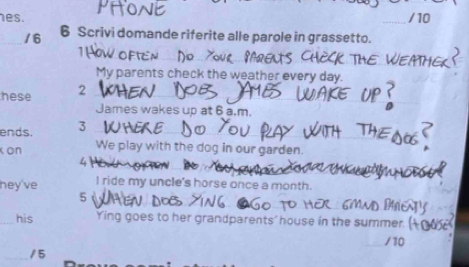 PHONE
hes.
/ 10
/ 6
6 Scrivi domande riferite alle parole in grassetto.
1 HOW OFTEN DO YOUR PARENTS CHECK THE WEATHER?
My parents check the weather every day.
hese
2 WHEN DOES JAMES WAKE UP?
James wakes up at 6 a.m.
ends.
3 WHERE DO YOU PLAY WITH THE DOG?
k on
We play with the dog in our garden.
4
hey've
I ride my uncle's horse once a month.
5 WHEN DOES YING GO TO HER GRAND PARENT'S
his
Ying goes to her grandparents' house in the summer. HOUSE?
/ 10
/ 5